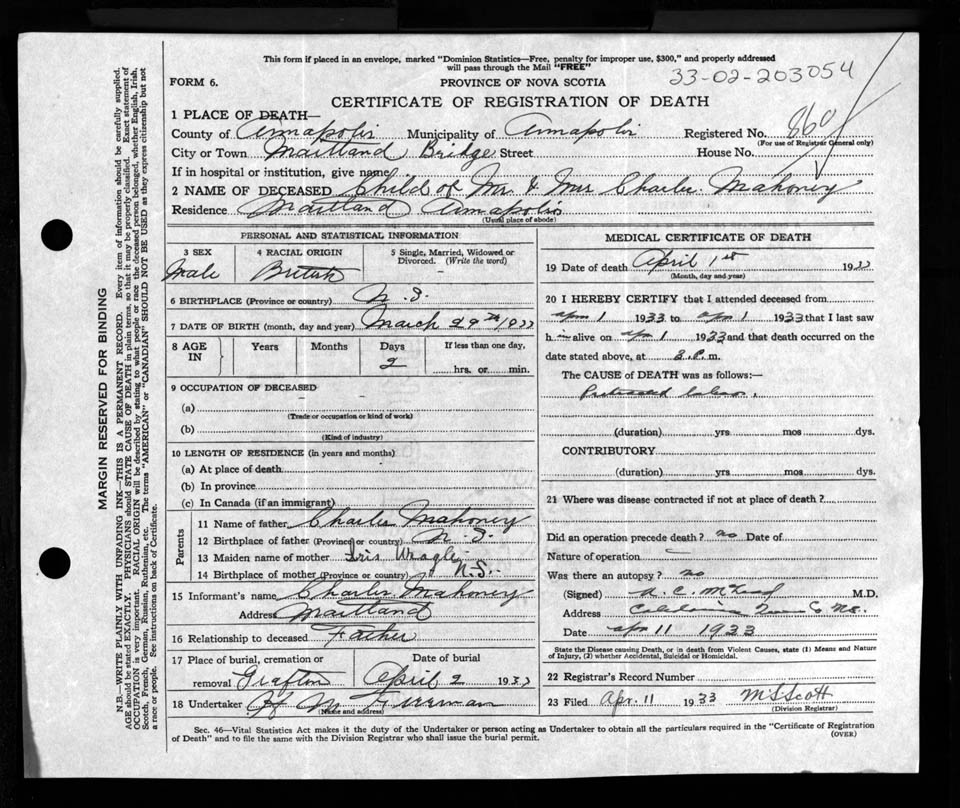 This form if placed in an envelope, marked "Dominion Statistics—Free, penalty for improper use, $300," and properly addressed
will pass through the Mail "FREE"
33-02-203054
FORM 6.
PROVINCE OF NOVA SCOTIA
CERTIFICATE OF REGISTRATION OF DEATH
1 PLACE OF DEATH—
County of Annapolis Municipality of Annapolis Registered No. 860
(For use of Registrar General only)
City or Town Maitland Bridge Street House No.
If in hospital or institution, give name
2 NAME OF DECEASED Child of Mr & Mrs Charles Mahoney
Residence Maitland Annapolis
(Usual place of abode)
PERSONAL AND STATISTICAL INFORMATION
3 SEX 4 RACIAL ORIGIN 5 Single, Married, Widowed or
Divorced. (Write the word)
Male British
6 BIRTHPLACE (Province or country) N.S.
7 DATE OF BIRTH (month, day and year) March 29th 1933
8 AGE IN Years Months Days If less than one day,
2 hrs. or min.
9 OCCUPATION OF DECEASED
(a)
(Trade or occupation or kind of work)
(b)
(Kind of industry)
10 LENGTH OF RESIDENCE (in years and months)
(a) At place of death
(b) In province
(c) In Canada (if an immigrant)
Parents
11 Name of father Charles Mahoney
12 Birthplace of father (Province or country) N.S.
13 Maiden name of mother Iris
14 Birthplace of mother (Province or country) N.S.
15 Informant's name Charles Mahoney
Address Maitland
16 Relationship to deceased Father
17 Place of burial, cremation or Date of burial
removal Grafton April 2 1933
18 Undertaker
(Name and address)
MEDICAL CERTIFICATE OF DEATH
19 Date of death April 1st 1933
(Month, day and year)
20 I HEREBY CERTIFY that I attended deceased from
apr 1 1933 to apr 1 1933 that I last saw
h im alive on apr 1 1933 and that death occurred on the
date stated above, at 8. P. m.
The CAUSE of DEATH was as follows:—
(duration) yrs mos dys.
CONTRIBUTORY
(duration) yrs mos dys.
21 Where was disease contracted if not at place of death?
Did an operation precede death? no Date of
Nature of operation
Was there an autopsy? no
(Signed) M.D.
Address Caledonia N.S.
Date apr 11 1933
State the Disease causing Death, or in death from Violent Causes, state (1) Means and Nature
of Injury, (2) whether Accidental, Suicidal or Homicidal.
22 Registrar's Record Number
23 Filed Apr. 11 1933 M S Scott
(Division Registrar)
Sec. 46—Vital Statistics Act makes it the duty of the Undertaker or person acting as Undertaker to obtain all the particulars required in the "Certificate of Registration
of Death" and to file the same with the Division Registrar who shall issue the burial permit.
(OVER)
MARGIN RESERVED FOR BINDING
N.B.—WRITE PLAINLY WITH UNFADING INK—THIS IS A PERMANENT RECORD. Every item of information should be carefully supplied.
AGE should be stated EXACTLY. PHYSICIANS should STATE CAUSE OF DEATH in plain terms, so that it may be properly classified. Exact statement of
OCCUPATION is very important. RACIAL ORIGIN will be described by stating to what people or race the deceased person belonged, whether English, Irish,
Scotch, French, German, Russian, Ruthenian, etc. The terms "AMERICAN" or "CANADIAN" SHOULD NOT BE USED as they express citizenship but not
a race or people. See instructions on back of Certificate.